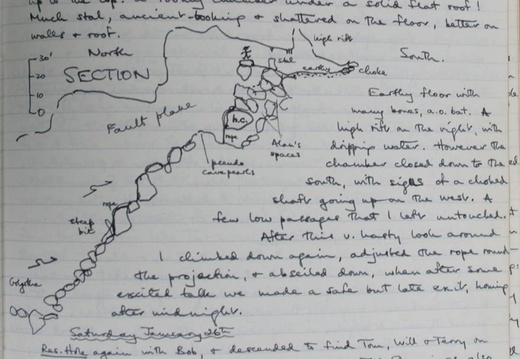 up to the top. A roomy chamber under a solid flat roof!
Much stal, ancient-looking & shattered on the floor, better on
walls & roof.
high rift
North
South.
30'
20
10
0
SECTION
stal
earthy
choke
Fault plane
h.c.
rope
Alan's
spaces
pseudo
cave pearls
rope
steep
bit
Glyska
Earthy floor with
many bones, a.o. bat. A
high rift on the right, with
dripping water. However the
chamber closed down to the
south, with signs of a choked
shaft going up on the west. A
few low passages that I left untouched.
After this v. hasty look around
I climbed down again, adjusted the rope round
the projection, & abseiled down, when after some
excited talk we made a safe but late exit, homing
after midnight.
Saturday January 26th
Res. Hole again with Bob, & descended to find Tom, Will & Terry on